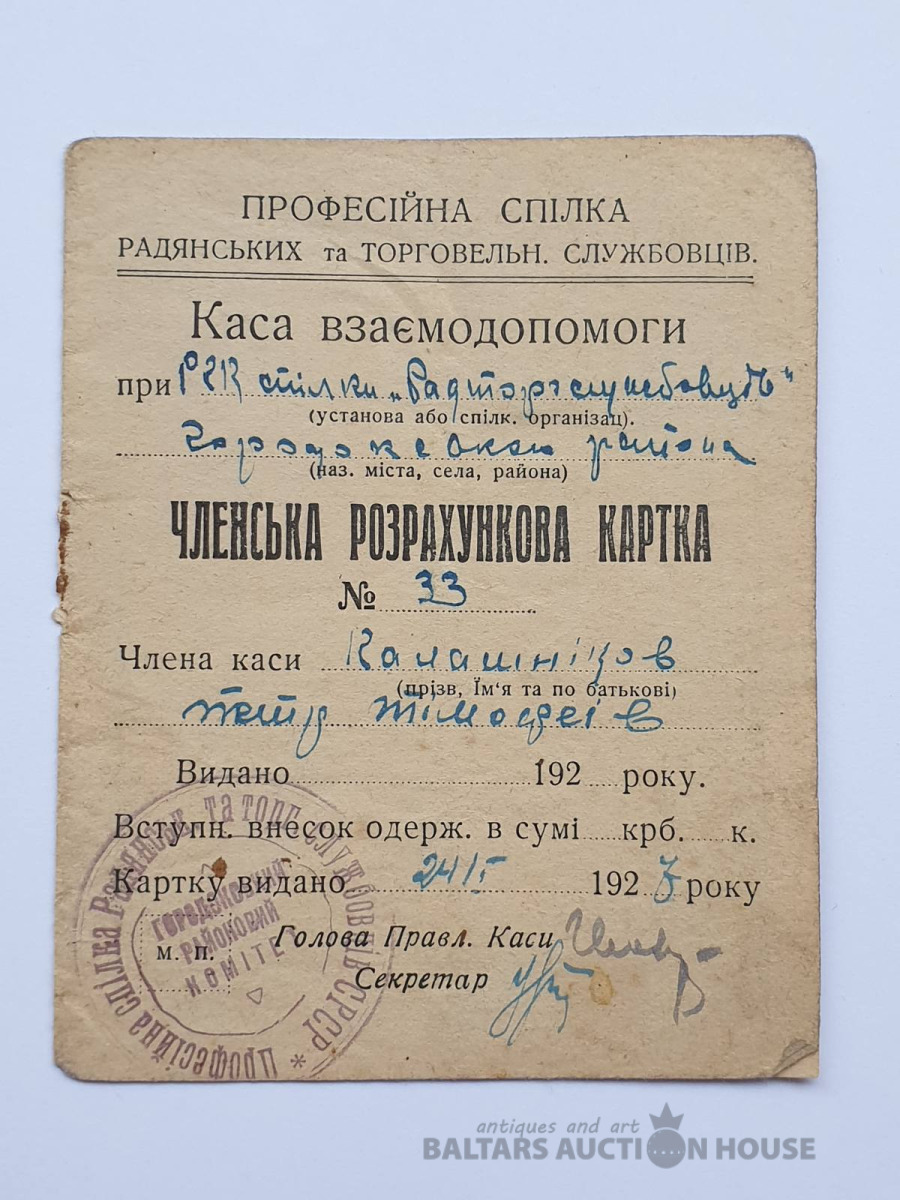 ПРОФЕСІЙНА СПІЛКА
РАДЯНСЬКИХ та ТОРГОВЕЛЬН. СЛУЖБОВЦІВ.
Каса взаємодопомоги
при спілки „Радторгслужбовців"
(установа або спілк. організац).
района
(наз. міста, села, района)
ЧЛЕНСЬКА РОЗРАХУНКОВА КАРТКА
№ 33
Члена каси Калашніков
(прізв, Їм'я та по батькові)
Петр Тімофеів
Видано 192 року.
Вступн. внесок одерж. в сумі крб. к.
Картку видано 192 7 року
м. п.
Голова Правл. Каси
Секретар
Професійна спілка Радянськ. та торг. службовців СРСР *
РАЙОНОВИЙ
КОМІТЕ
antiques and art
BALTARS AUCTION HOUSE